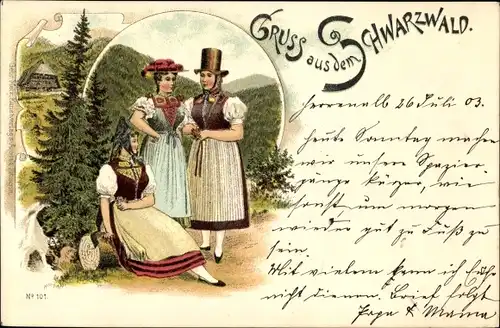 GRUSS aus dem SCHWARZWALD.
Herrenalb 26 Juli 03.
Heute Sonntag machen
wir unsere Spazier
gänge kürzer, wie
sonst um morgen
wieder gut zu Fuß zu
sein.
Mit vielem kann ich
nicht dienen. Brief folgt
Papa & Mama
No 101.